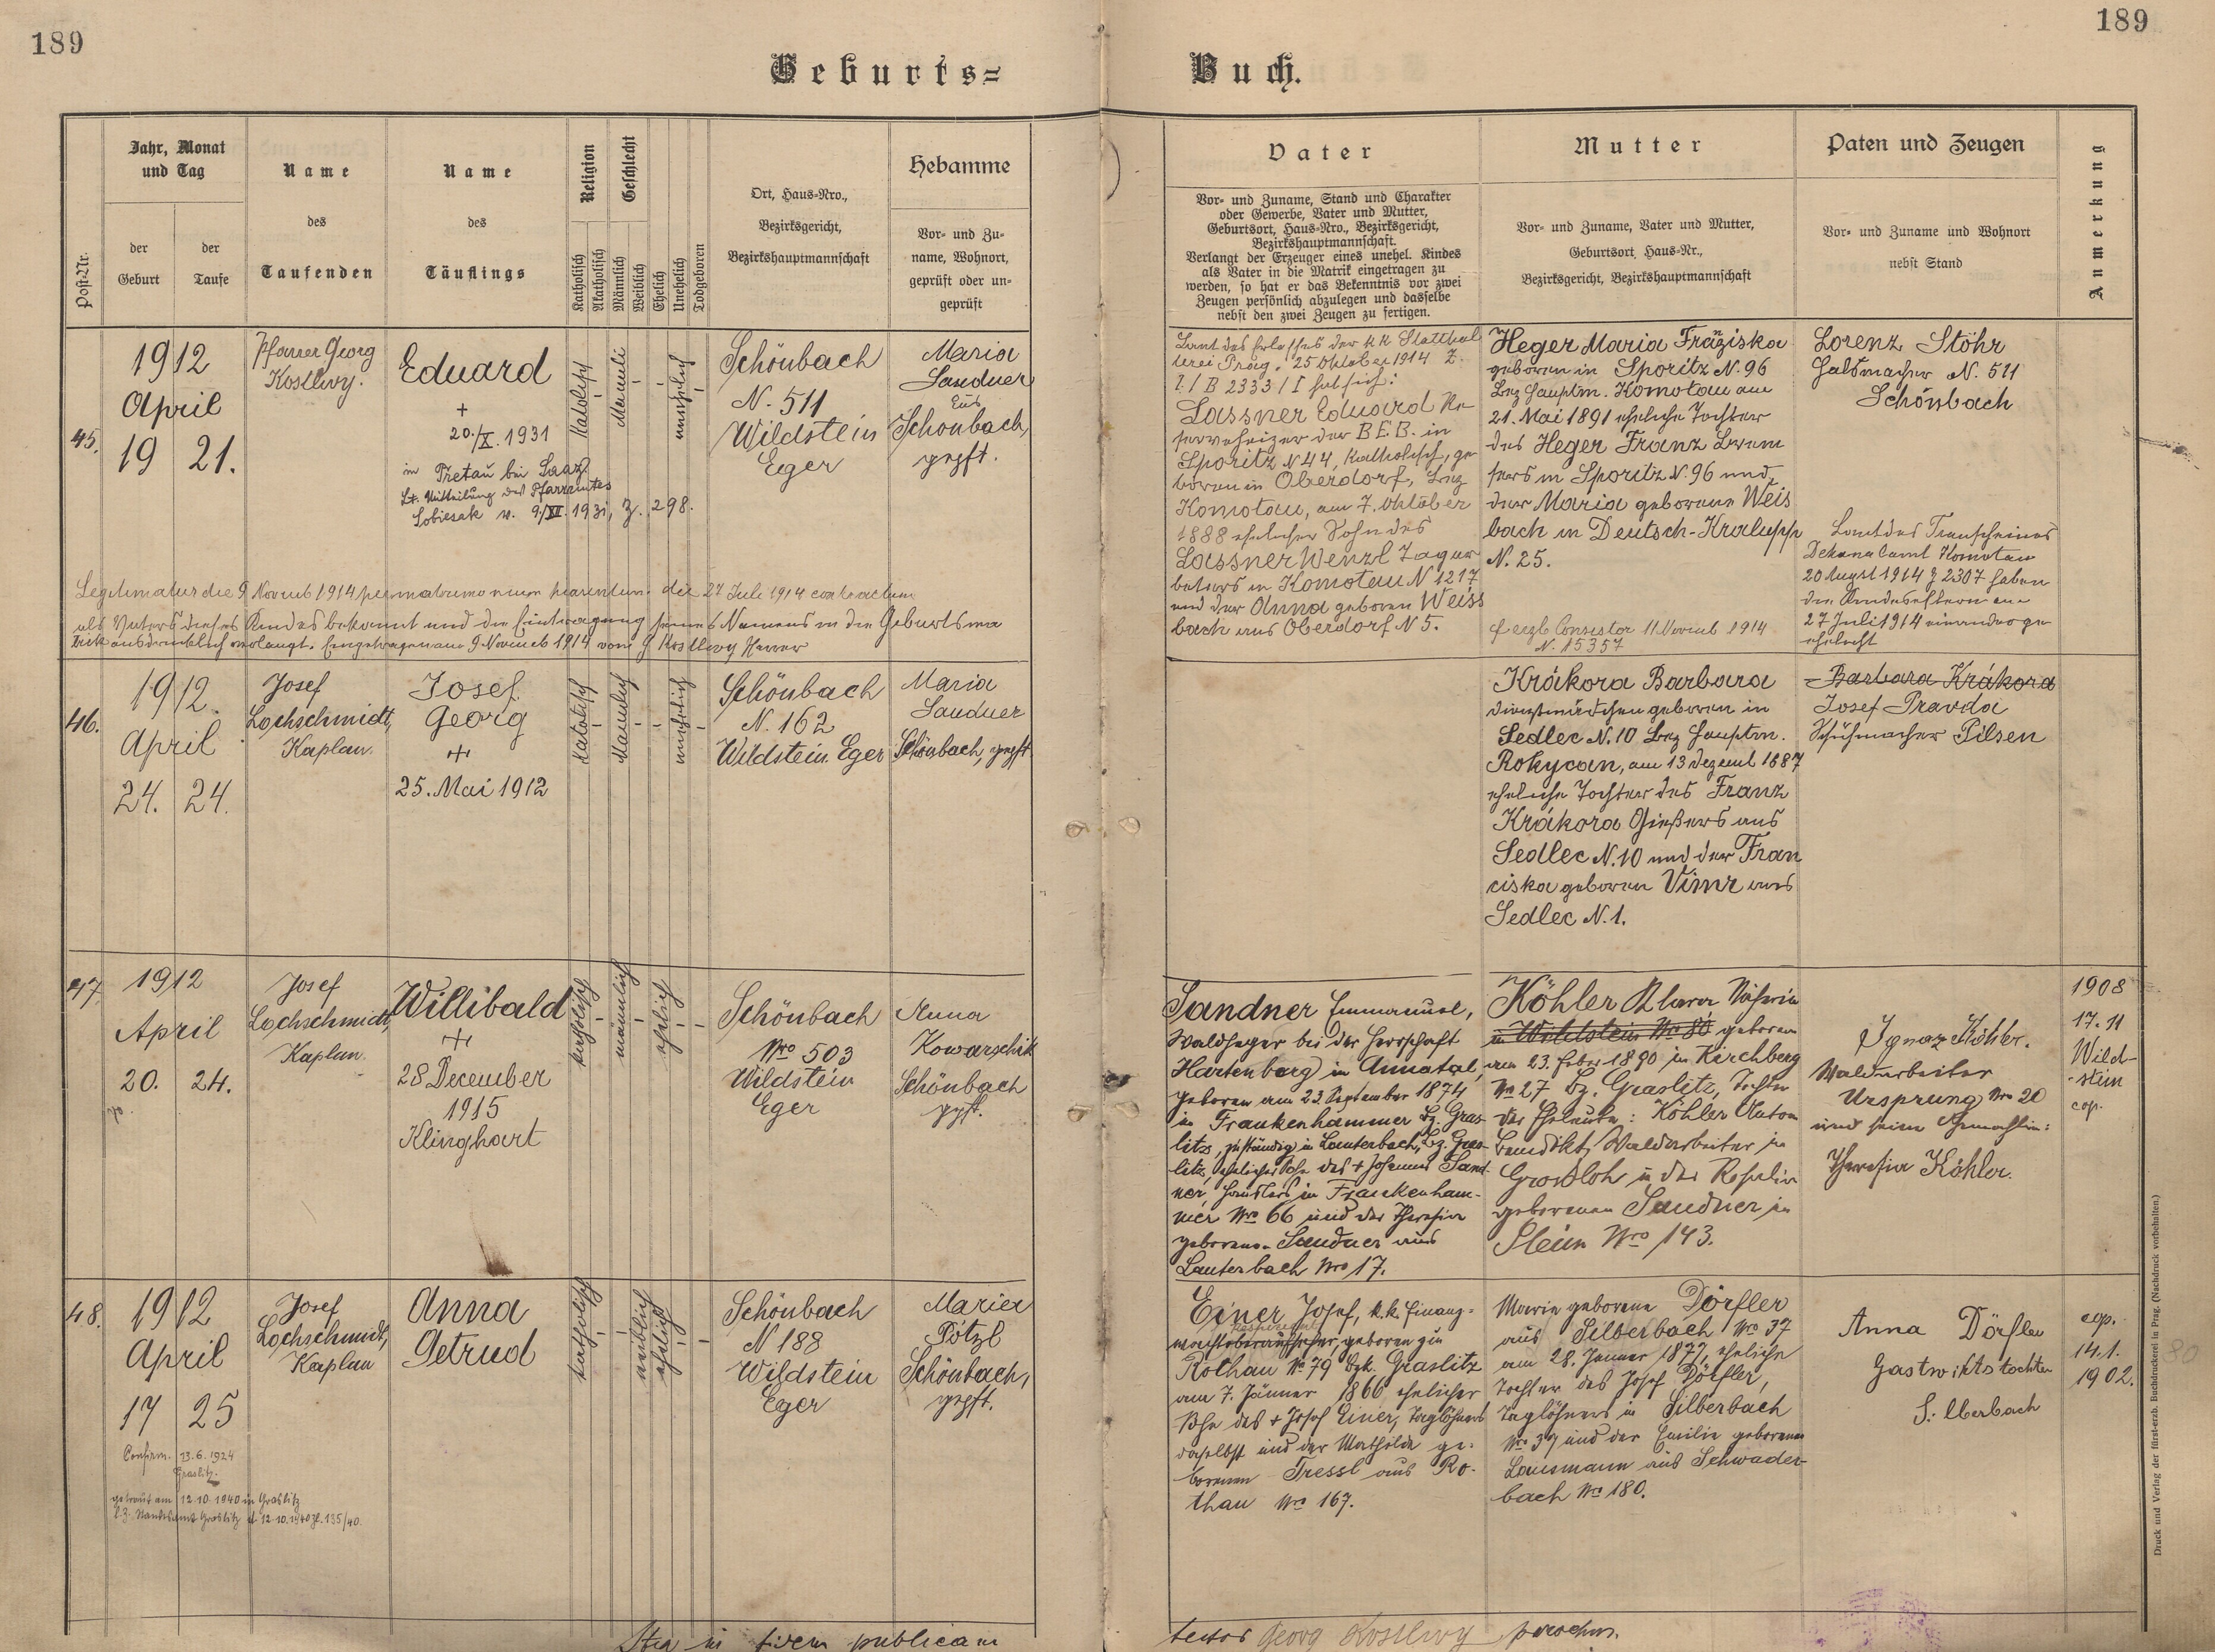 189
189
Geburts=
Buch.
Post-Nr.
Jahr, Monat
und Tag
der
Geburt
der
Taufe
Name
des
Taufenden
Name
des
Täuflings
Religion
Katholisch
Akatholisch
Geschlecht
Männlich
Weiblich
Ehelich
Unehelich
Todgeboren
Ort, Haus-Nro.,
Bezirksgericht,
Bezirkshauptmannschaft
Hebamme
Vor- und Zu-
name, Wohnort,
geprüft oder un-
geprüft
Vater
Vor- und Zuname, Stand und Charakter
oder Gewerbe, Vater und Mutter,
Geburtsort, Haus-Nro., Bezirksgericht,
Bezirkshauptmannschaft.
Verlangt der Erzeuger eines unehel. Kindes
als Vater in die Matrik eingetragen zu
werden, so hat er das Bekenntnis vor zwei
Zeugen persönlich abzulegen und dasselbe
nebst den zwei Zeugen zu fertigen.
Mutter
Vor- und Zuname, Vater und Mutter,
Geburtsort, Haus-Nr.,
Bezirksgericht, Bezirkshauptmannschaft
Paten und Zeugen
Vor- und Zuname und Wohnort
nebst Stand
Anmerkung
45.
1912
April
19 21.
Pfarrer Georg
Kostlivy.
Eduard
+
20./X. 1931
in Tretau bei Saaz
Lt. Mitteilung des Pfarramtes
Sobiesak v. 9/XI. 1931, Z. 298.
Katolisch
-
Männli
-
-
unehelich
-
Schönbach
N. 511
Wildstein
Eger
Maria
Sandner
aus
Schönbach,
gepft.
Laut des Erlasses der kk Statthal
terei Prag, 25 Oktober 1914 Z.
I/B 2333/I hat sich:
Lassner Eduard Re
serveheizer der B.E.B. in
Sporitz N 44, katholisch, ge
boren in Oberdorf, Bez
Komotau, am 7. Oktober
1888 ehelicher Sohn des
Lassner Wenzl Tagar
beiters in Komotau N 1217
und der Anna geboren Weiss
bach aus Oberdorf N 5.
Heger Maria Franziska
geboren in Sporitz N. 96
Bez Hauptm. Komotau am
21. Mai 1891 eheliche Tochter
des Heger Franz
in Sporitz N. 96 und
der Maria geborene Weis
bach in Deutsch-Kralupp
N. 25.
Erzb Consistor 11 Novemb 1914
N. 15357
Lorenz Stöhr
Halsmacher N. 511
Schönbach
Laut des Trauscheines
Dekanalamt Komotau
20 August 1914 Z 2307 haben
die Kindeseltern am
27 Juli 1914 einander ge
ehelicht
Legitimatur die 9 Novemb 1914 per matrimonium parentum die 27 Juli 1914 contractum
als Vater dieses Kindes bekannt und die Eintragung seines Namens in die Geburtsma
trik ausdrücklich verlangt. Eingetragen am 9 Novemb 1914 vom G Kostlivy Pfarrer
46.
1912.
April
24. 24.
Josef
Lochschmidt,
Kaplan.
Josef
Georg
+
25. Mai 1912
Katolisch
-
Männlich
-
-
unehelich
-
Schönbach
N. 162
Wildstein Eger
Maria
Sandner
Schönbach, gepft
Krákora Barbara
Dienstmädchen geboren in
Sedlec N. 10 Bez Hauptm.
Rokycan, am 13 Dezemb 1887
eheliche Tochter des Franz
Krákora Gießers aus
Sedlec N. 10 und der Fran
ciska geboren Vimr aus
Sedlec N. 1.
Barbara Krákora
Josef Pravda
Schuhmacher Pilsen
47
1912
April
20. 24.
Josef
Lochschmidt,
Kaplan.
Willibald
+
28 December
1915
Klinghart
katholisch
-
männlich
-
ehelich
-
-
Schönbach
Nro 503
Wildstein
Eger
Anna
Kowarschik
Schönbach
gpft.
Sandner Emmanuel,
Waldheger bei der Herrschaft
Hartenberg in Annatal,
geboren am 23. September 1874
in Frankenhammer Bz. Gras-
litz, zuständig in Lauterbach, Bz. Gras-
litz, ehelicher Sohn des + Johannes Sand-
ner, Häuslers in Frankenham-
mer Nro 66 und der Theresia
geborene Sandner aus
Lauterbach Nro 17.
Köhler Klara Näherin
in Wildstein No 80 geboren
am 23. Feber 1890 in Kirchberg
No 27, Bz. Graslitz, Tochter
der Eheleute: Köhler Anton
Benedikt, Waldarbeiter in
Grossloh u. der Rosalia
geborenen Sandner in
Stein Nro 143.
Ignaz Köhler.
Waldarbeiter
Ursprung Nro 20
und seine Gemahlin:
Theresia Köhler.
1908
17.11
Wild-
-stein
cop.
48.
1912
April
17 25
Confirm. 13.6.1924
Graslitz.
getraut am 12.10.1940 in Graslitz
l. Z. Standesamt Graslitz d 12.10.1940 Zl. 135/40.
Josef
Lochschmidt,
Kaplan
Anna
Getrud
katholisch
-
-
weiblich
ehelich
-
-
Schönbach
N 188
Wildstein
Eger
Marie
Pötzl
Schönbach,
gepft.
Einer Josef, k.k. Finanz-
wachoberaufseher, geboren zu
Rothau No 79 Bzk. Graslitz
am 7. Jänner 1866 ehelicher
Sohn des + Josef Einer, Taglöhners
daselbst und der Mathilde ge-
borenen Tressl aus Ro-
thau Nro 167.
Marie geborene Dörfler
aus Silberbach Nro 37
am 28. Januar 1877, eheliche
Tochter des Josef Dörfler,
Taglöhners in Silberbach
Nro 37 und der Emilie geborenen
Lausmann aus Schwader-
bach No 180.
Anna Dörfler
Gastwirtstochter
Silberbach
cop.
14.1.
1902.
80
Ita in fidem publicam
testor Georg Kostlivy parochus.
Druck und Verlag der fürst-erzb. Buchdruckerei in Prag. (Nachdruck vorbehalten.)